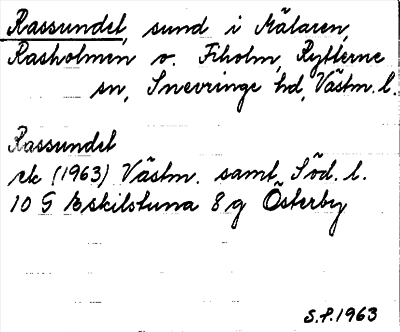 Rassundet, sund i Mälaren,
Rasholmen o. Fiholm, Rytterne
sn, Snevringe hd, Västm. l.
Rassundet
rk (1963) Västm. samt Söd. l.
10 G Eskilstuna 8 g Österby
S.P. 1963